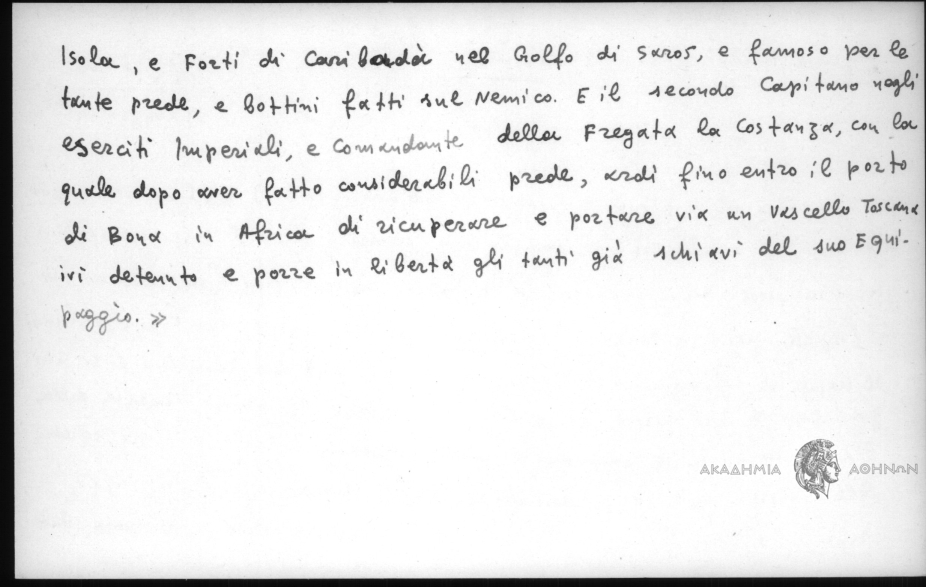 Isola, e Forti di Caribardà nel Golfo di Saros, e famoso per le
tante prede, e Bottini fatti sul Nemico. E il secondo Capitano negli
eserciti Imperiali, e Comandante della Fregata la Costanza, con la
quale dopo aver fatto considerabili prede, ardì fino entro il porto
di Bona in Africa di ricuperare e portare via un Vascello Toscana
ivi detenuto e porre in libertà gli tanti già schiavi del suo Equi-
paggio. »
ΑΚΑΔΗΜΙΑ ΑΘΗΝΩΝ